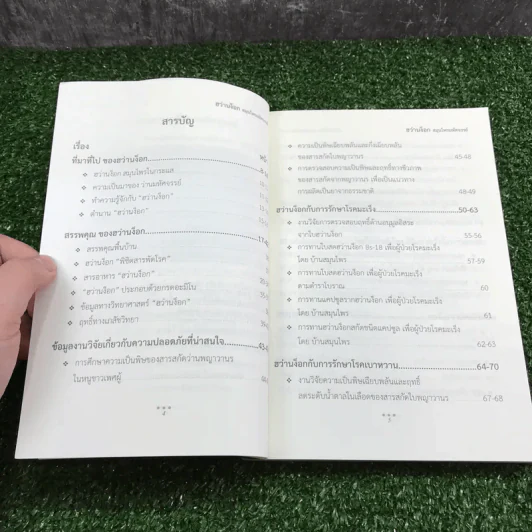 สารบัญ
เรื่อง
ที่มาที่ไป ของฮว่านง็อก
❖ ฮว่านง็อก สมุนไพรในกระแส
❖ ความเป็นมาของ ว่านมหัศจรรย์
❖ ทำความรู้จักกับ "ฮว่านง็อก"
❖ ตำนาน "ฮว่านง็อก"
สรรพคุณ ของฮว่านง็อก
❖ สรรพคุณพื้นบ้าน
❖ ฮว่านง็อก "พิชิตสารพัดโรค"
❖ สารอาหาร "ฮว่านง็อก"
❖ "ฮว่านง็อก" ประกอบด้วยกรดอะมิโน
❖ ข้อมูลทางวิทยาศาสตร์ "ฮว่านง็อก"
❖ ฤทธิ์ทางเภสัชวิทยา
ข้อมูลงานวิจัยเกี่ยวกับความปลอดภัยที่น่าสนใจ
❖ การศึกษาความเป็นพิษของสารสกัดว่านพญาวานร
ในหนูขาวเพศผู้
*** 4
ฮว่านง็อก
❖ ความเป็นพิษเฉียบพลันและกึ่งเฉียบพลัน
ของสารสกัดใบพญาวานร 45-48
❖ การตรวจสอบความเป็นพิษและฤทธิ์ทางชีวภาพ
ของสารสกัดจากพญาวานร เพื่อเป็นแนวทาง
การผลิตเป็นยาจากธรรมชาติ 48-49
ฮว่านง็อกกับการรักษาโรคมะเร็ง 50-63
❖ งานวิจัยการตรวจสอบฤทธิ์ต้านอนุมูลอิสระ
จากใบฮว่านง็อก 55-56
❖ การทานใบสดฮว่านง็อก เพื่อผู้ป่วยโรคมะเร็ง
โดย บ้านสมุนไพร 57-59
❖ การทานใบสดฮว่านง็อก เพื่อผู้ป่วยโรคมะเร็ง
ตามตำราโบราณ 60
❖ การทานแคปซูลรากฮว่านง็อก เพื่อผู้ป่วยโรคมะเร็ง
โดย บ้านสมุนไพร 61
❖ การทานฮว่านง็อกสกัดชนิดแคปซูล เพื่อผู้ป่วยโรคมะเร็ง
โดย บ้านสมุนไพร 62-63
ฮว่านง็อกกับการรักษาโรคเบาหวาน 64-70
❖ งานวิจัยความเป็นพิษเฉียบพลันและฤทธิ์
ลดระดับน้ำตาลในเลือดของสารสกัดใบพญาวานร 67-68
*** 5